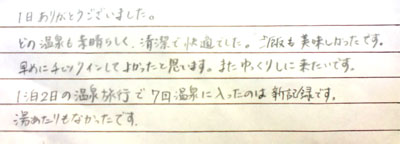 1日ありがとうございました。
どの温泉も素晴らしく、清潔で快適でした。ご飯も美味しかったです。
早めにチェックインしてよかったと思います。またゆっくりしに来たいです。
1泊2日の温泉旅行で7回温泉に入ったのは新記録です。
湯あたりもなかったです。